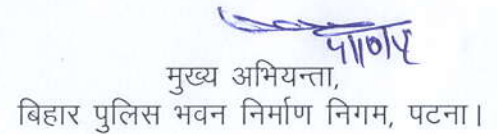 मुख्य अभियन्ता,
बिहार पुलिस भवन निर्माण निगम, पटना।